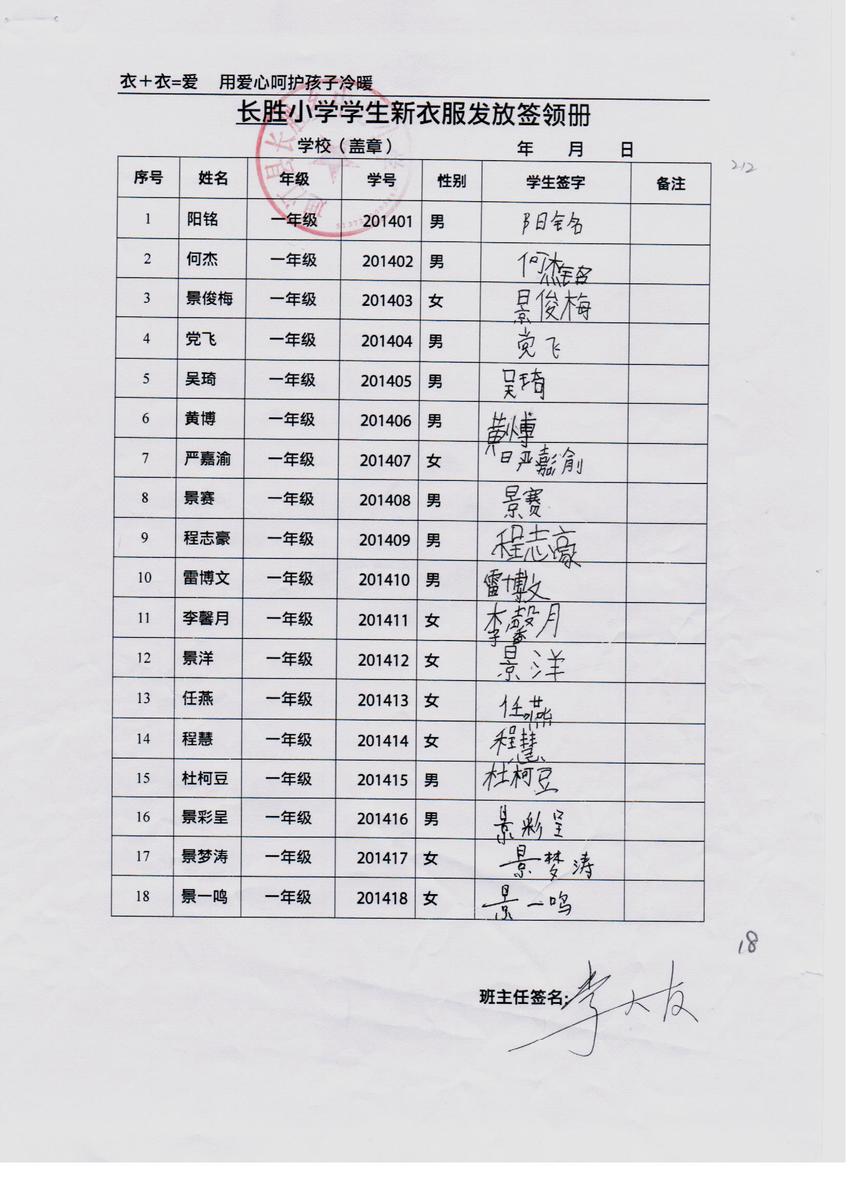 衣+衣=爱 用爱心呵护孩子冷暖
长胜小学学生新衣服发放签领册
学校（盖章） 年 月 日
212
序号 姓名 年级 学号 性别 学生签字 备注
1 阳铭 一年级 201401 男 阳铭
2 何杰 一年级 201402 男 何杰铭
3 景俊梅 一年级 201403 女 景俊梅
4 党飞 一年级 201404 男 党飞
5 吴琦 一年级 201405 男 吴琦
6 黄博 一年级 201406 男 黄博
7 严嘉渝 一年级 201407 女 严嘉渝
8 景赛 一年级 201408 男 景赛
9 程志豪 一年级 201409 男 程志豪
10 雷博文 一年级 201410 男 雷博文
11 李馨月 一年级 201411 女 李馨月
12 景洋 一年级 201412 女 景洋
13 任燕 一年级 201413 女 任燕
14 程慧 一年级 201414 女 程慧
15 杜柯豆 一年级 201415 男 杜柯豆
16 景彩呈 一年级 201416 男 景彩呈
17 景梦涛 一年级 201417 女 景梦涛
18 景一鸣 一年级 201418 女 景一鸣
18
班主任签名: 李大友